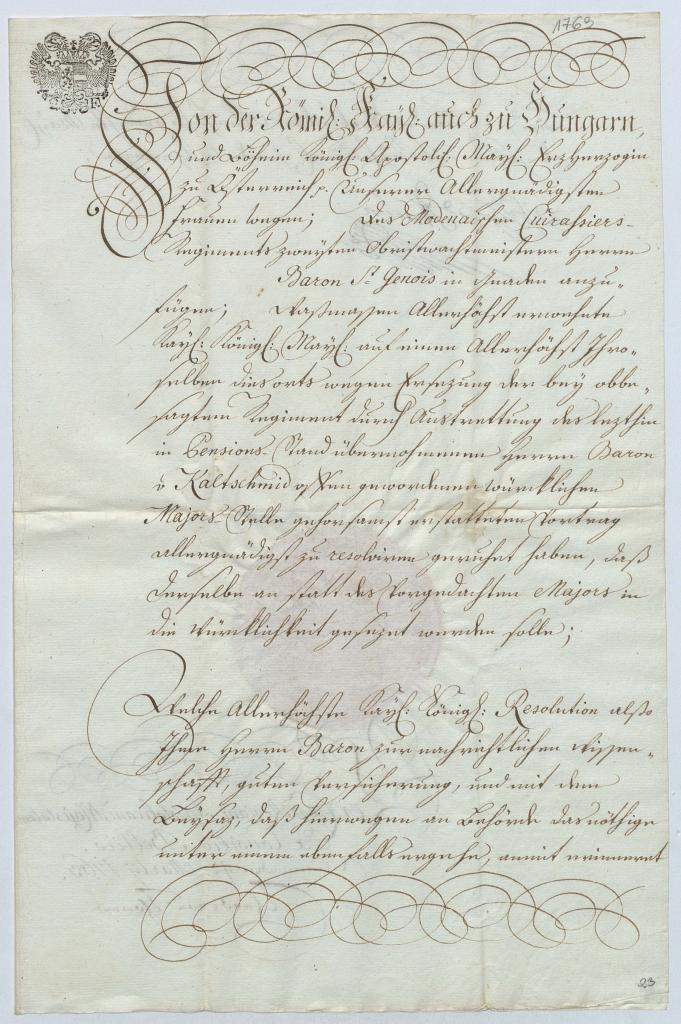 1763
Von der Römisch: Kayß: auch zu Hungarn,
und Böheim Königl: Apostolisch: May: Erzherzogin
zu Österreich p. Unserer Allergnädigsten
Frauen wegen; Des Modenaischen Cuirassiers-
Regiments zweyten Obristwachtmeistern Herrn
Baron St. Genois in Gnaden anzu-
fügen; Waßmassen Allerhöchst ernennte
Kayß: Königl: May: auf einen Allerhöchst Ihro-
selben diesorts wegen Ersezung der bey obbe-
sagtem Regiment durch Austrettung des lezthin
in Pensions-Stand übernohmenen Herrn Baron
v Kaltschmid offen gewordenen würcklichen
Majors-Stelle gehorsamst erstatteten Vortrag
allergnädigst zu resolviren geruhet haben, daß
derselbe an statt des Vorgedachten Majors in
die Würcklichkeit gesezet werden solle;
Welche Allerhöchste Kayß: Königl: Resolution also
Ihme Herrn Baron zur nachrichtlichen Wissen-
schafft, guten Versicherung, und mit dem
Beysaz, daß hierwegen an Behörde das nöthige
unter einem ebenfalls ergehe, anmit erinneret
23